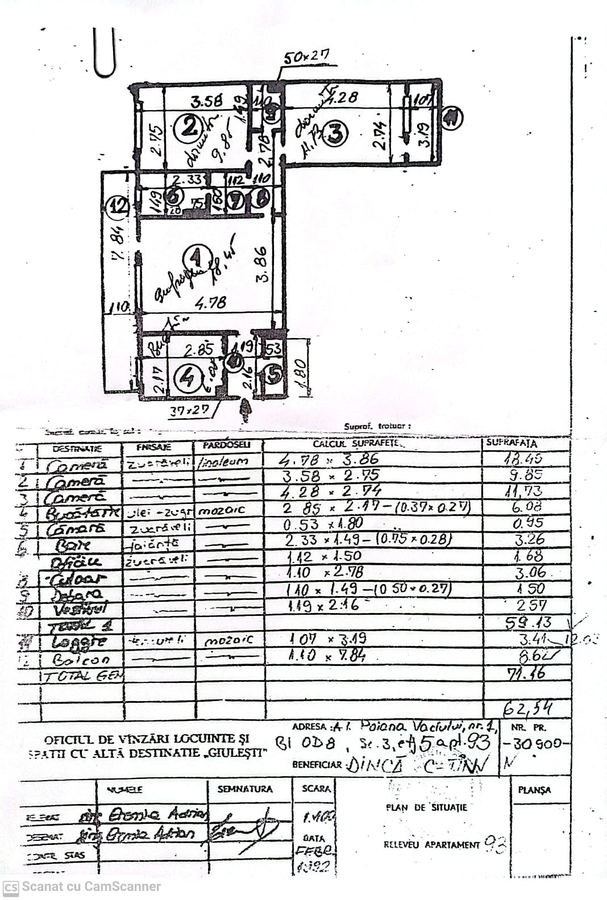 50x27
3.58
1.49
110
4.28
107
2
2.75
9.85
9
3
11.73
2.74
3.19
11
2.78
2.33
112
110
12
1.49
6
28
75
150
7
8
7.84
1
18.45
3.86
4.78
110
2.85
1.19
53
2.17
4
10
2.16
5
1.80
37x27
Supraf. trotuar :
DESTINATIE FINISAJE PARDOSELI CALCUL SUPRAFEȚE SUPRAFAȚA
1 Cameră zugrăveli linoleum 4.78 x 3.86 18.45
2 Cameră 3.58 x 2.75 9.85
3 Cameră 4.28 x 2.74 11,73
4 Bucătărie ulei-zugr mozaic 2 85 x 2.17-(0.37x0.27) 6.08
5 Cămară zugrăveli 0.53 x 1.80 0.95
6 Baie faianță 2.33 x 1.49-(0.75x0.28) 3.26
Oficiu zugrăveli 1.12 x 1.50 1.68
8 Culoar 1.10 x 2.78 3.06
9 Debara 1.10 x 1.49-(0 50x0.27) 1 50
10 Vestibul 1.19 x 2.16 2.57
TOTAL 1 59.13
11 Loggie mozaic 1 07 x 3.19 3.41
Balcon 1.10 x 7.84 8.62
TOTAL GEN 71.16
62,54
OFICIUL DE VÎNZĂRI LOCUINTE ȘI
SPATII CU ALTĂ DESTINATIE „GIULEȘTI”
ADRESA : Al. Poiana Vadului, nr. 1,
Bl OD8, Sc. 3, etj 5 apt. 93
BENEFICIAR: DINCĂ C-TIN
NR. PR.
-30900-
N
NUMELE SEMNATURA SCARA PLANȘA
Adrian 1.100
Adrian DATA
FEBR
1992
PLAN DE SITUAȚIE
RELEVEU APARTAMENT 93
CS Scanat cu CamScanner